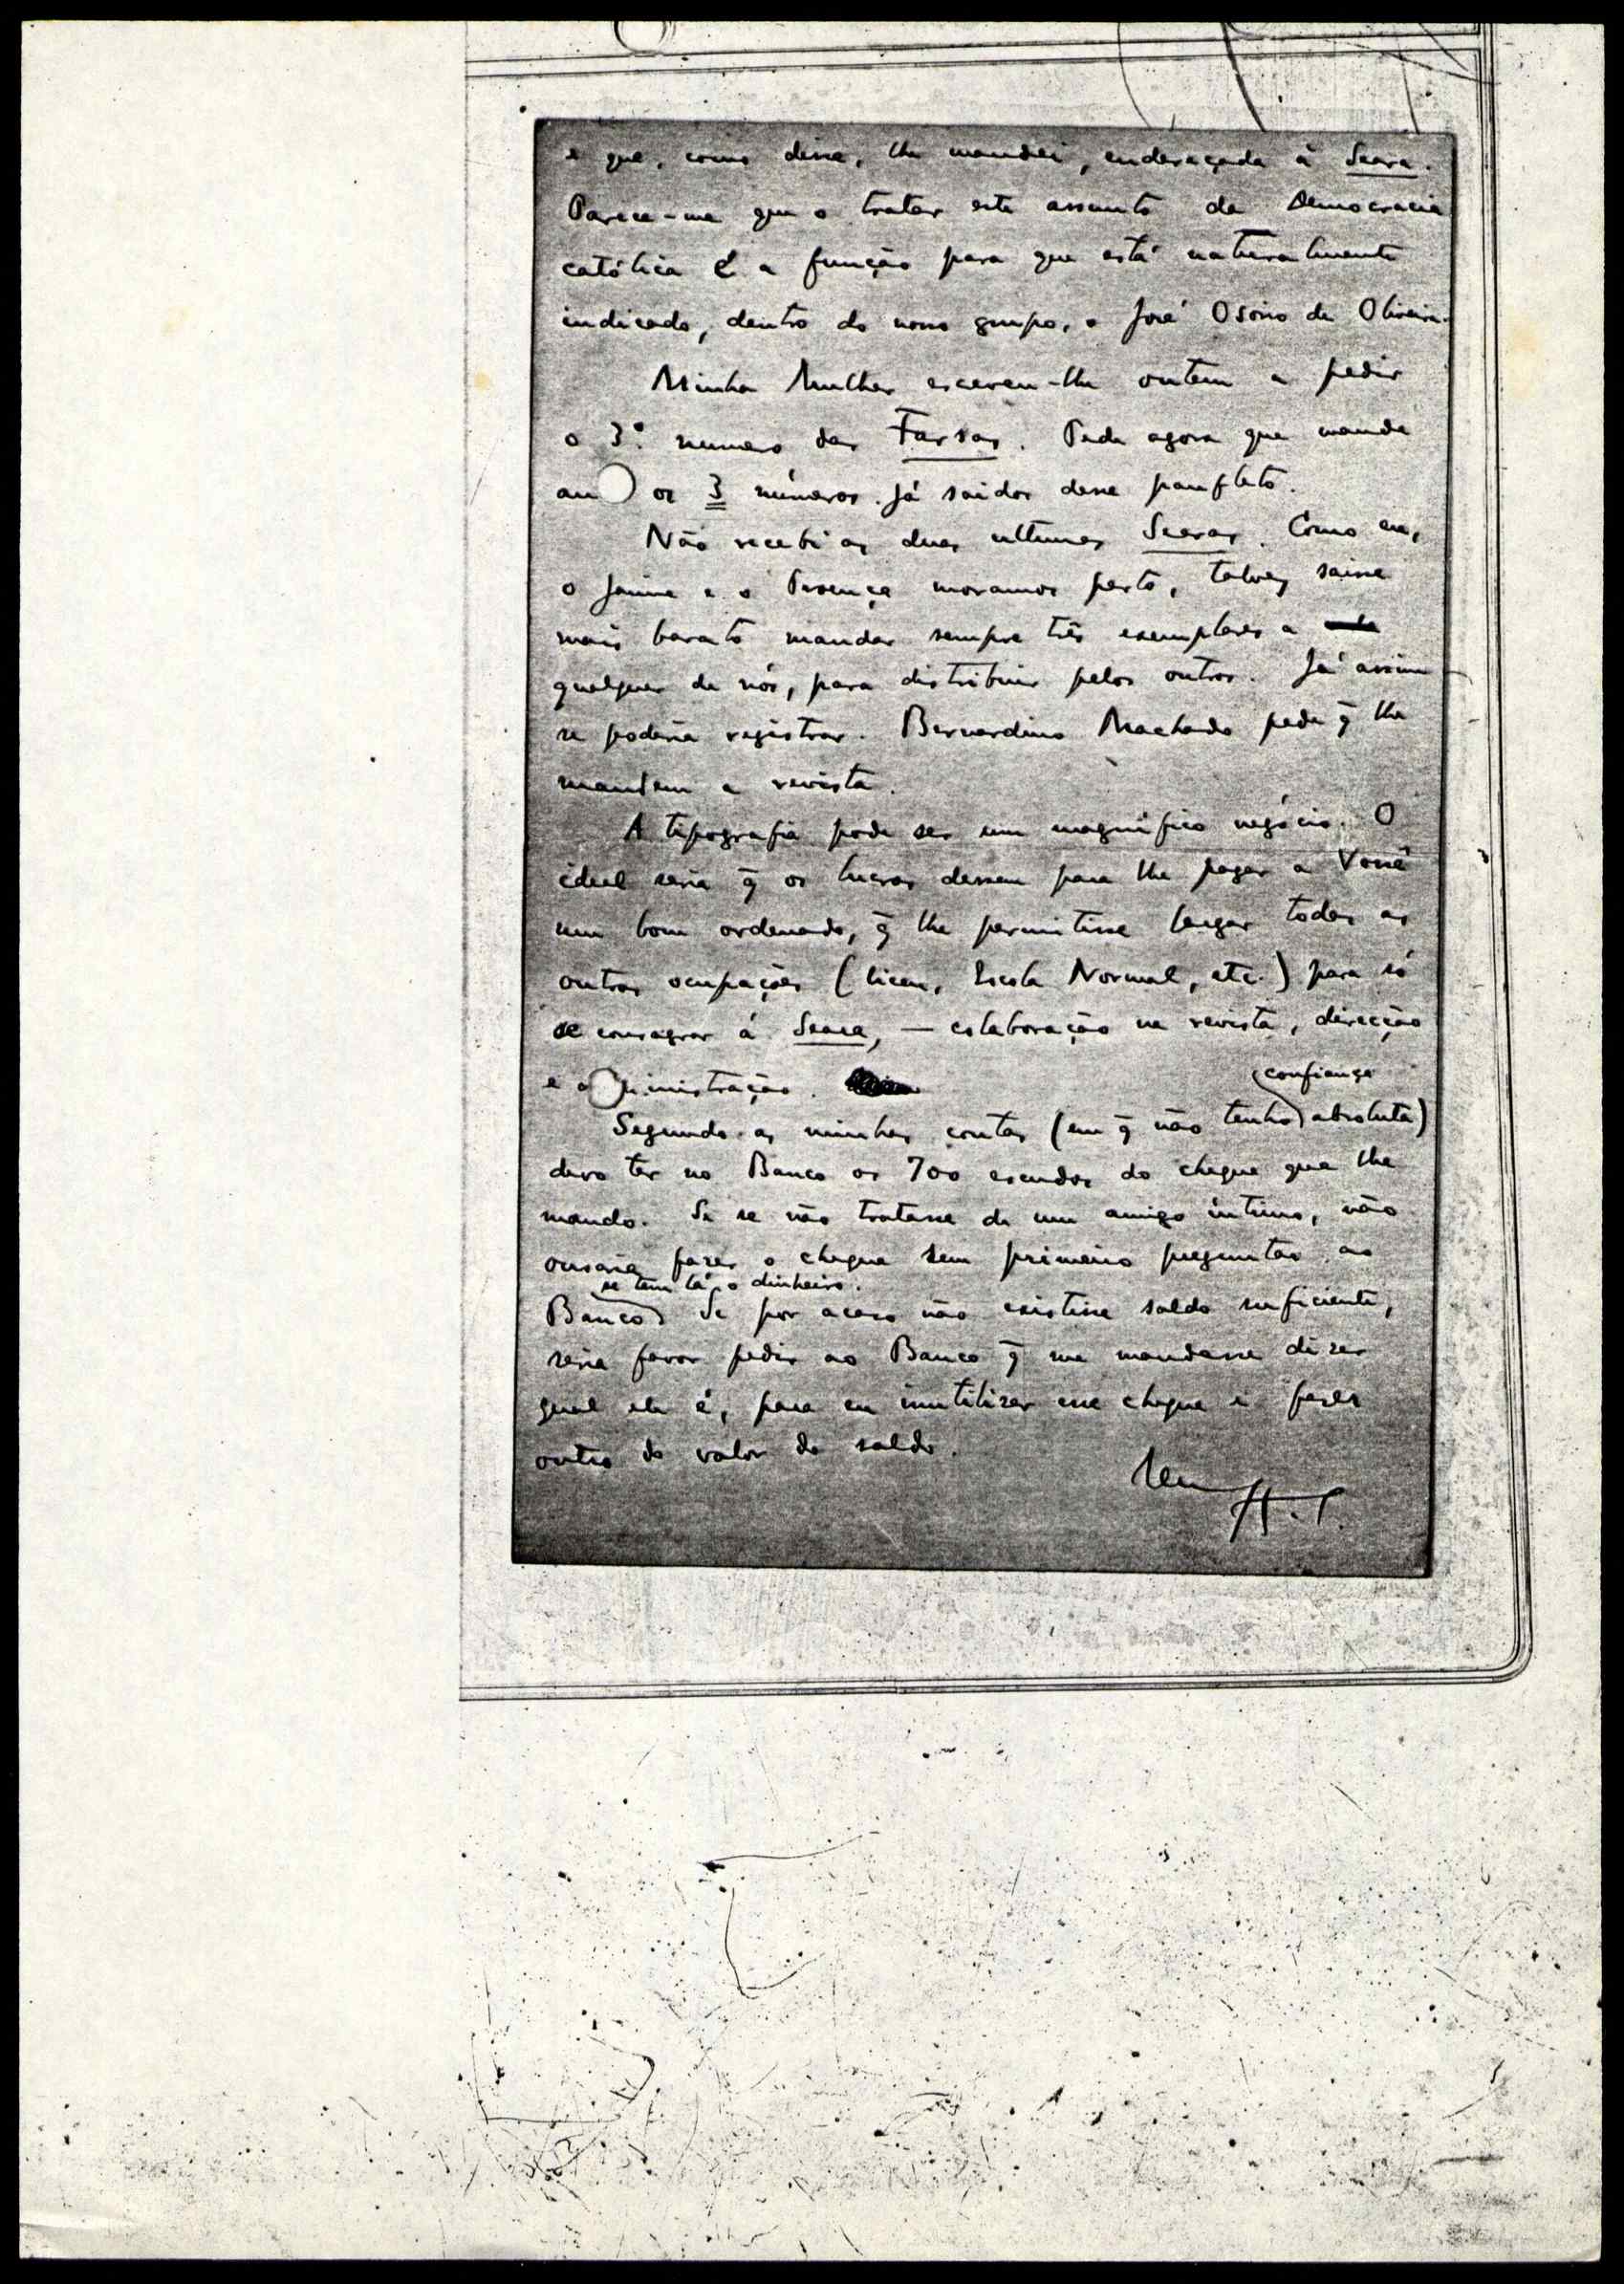 e que, como disse, lhe mandei, endereçada à Seara.
Parece-me que o tratar este assunto da Democracia
católica é a função para que está naturalmente
indicado, dentro do nosso grupo, o José Osório de Oliveira.
Minha Mulher escreveu-lhe ontem a pedir
o 3º. numero das Farsas. Pede agora que mande
os 3 números já saidos desse panfleto.
Não recebi as duas ultimas Searas. Como eu,
o Jaime e o Proença moramos perto, talvez saisse
mais barato mandar sempre três exemplares a
qualquer de nós, para distribuir pelos outros. Já assim
se poderia registrar. Bernardino Machado pede q̃ lhe
mandem a revista.
A tipografia pode ser um magnífico negócio. O
ideal seria q̃ os lucros dessem para lhe pagar a Você
um bom ordenado, q̃ lhe permitisse largar todas as
outras ocupações (liceu, Escola Normal, etc.) para só
se consagrar á Seara, — colaboração na revista, direcção
e a ministração.
Segundo as minhas contas (em q̃ não tenho confiança absoluta)
devo ter no Banco os 700 escudos do cheque que lhe
mando. Se se não tratasse de um amigo íntimo, não
ousaria fazer o cheque sem primeiro preguntar ao
Banco se tem lá o dinheiro. Se por acaso não existisse saldo suficiente,
seria favor pedir ao Banco q̃ me mandasse dizer
qual ele é, para eu inutilizar esse cheque e fazer
outro do valor do saldo.
Seu